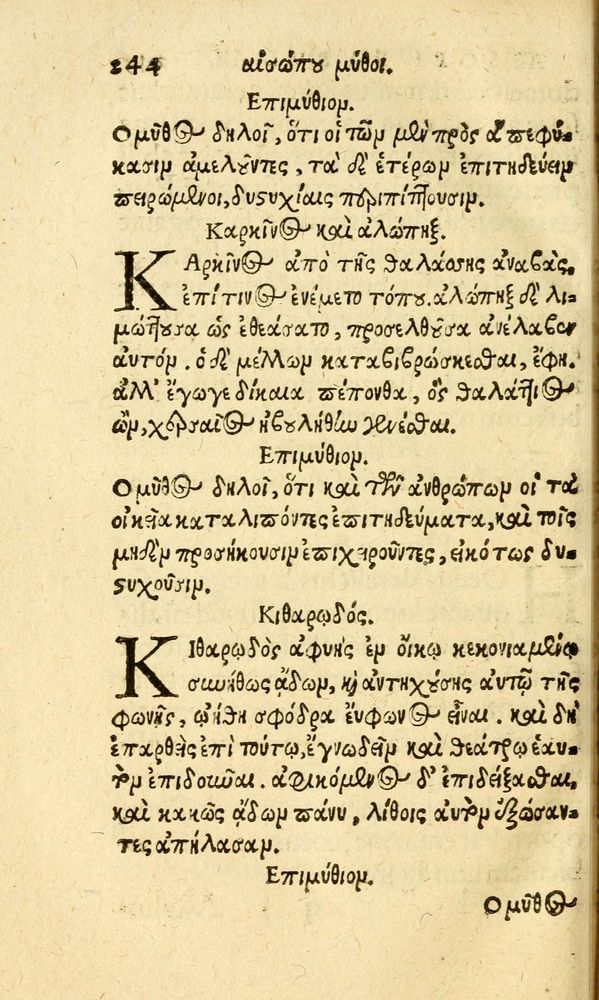 244 αἰσώπου μῦθοι.
Επιμύθιον.
Ο μῦθος δηλοῖ, ὅτι οἱ τῶν μὲν πρὸς ἃ πεφύ-
κασιν ἀμελοῦντες, τὰ δ' ἑτέρων ἐπιτηδεύειν
πειρώμενοι, δυστυχίαις περιπίπτουσιν.
Καρκῖνος καὶ ἀλώπηξ.
ΚΑρκῖνος ἀπὸ τῆς θαλάσσης ἀναβὰς,
ἐπί τινος ἐνέμετο τόπου. ἀλώπηξ δὲ λι-
μώττουσα ὡς ἐθεάσατο, προσελθοῦσα ἀνέλαβεν
αὐτόν. ὁ δὲ μέλλων καταβιβρώσκεσθαι, ἔφη.
ἀλλ' ἔγωγε δίκαια πέπονθα, ὃς θαλάττιος
ὢν, χερσαῖος ἠβουλήθην γενέσθαι.
Επιμύθιον.
Ο μῦθος δηλοῖ, ὅτι καὶ τῶν ἀνθρώπων οἱ τὰ
οἰκεῖα καταλιπόντες ἐπιτηδεύματα, καὶ τοῖς
μηδὲν προσήκουσιν ἐπιχειροῦντες, εἰκότως δυ-
στυχοῦσιν.
Κιθαρῳδός.
ΚΙθαρῳδὸς ἀφυὴς ἐν οἴκῳ κεκονιαμένῳ
συνήθως ᾄδων, καὶ ἀντηχούσης αὐτῷ τῆς
φωνῆς, ᾠήθη σφόδρα εὔφωνος εἶναι. καὶ δὴ
ἐπαρθεὶς ἐπὶ τούτῳ, ἔγνω δεῖν καὶ θεάτρῳ ἑαυ-
τὸν ἐπιδοῦναι. ἀφικόμενος δ' ἐπιδείξασθαι,
καὶ κακῶς ᾄδων πάνυ, λίθοις αὐτὸν ἐξώσαν-
τες ἀπήλασαν.
Επιμύθιον.
Ο μῦθος